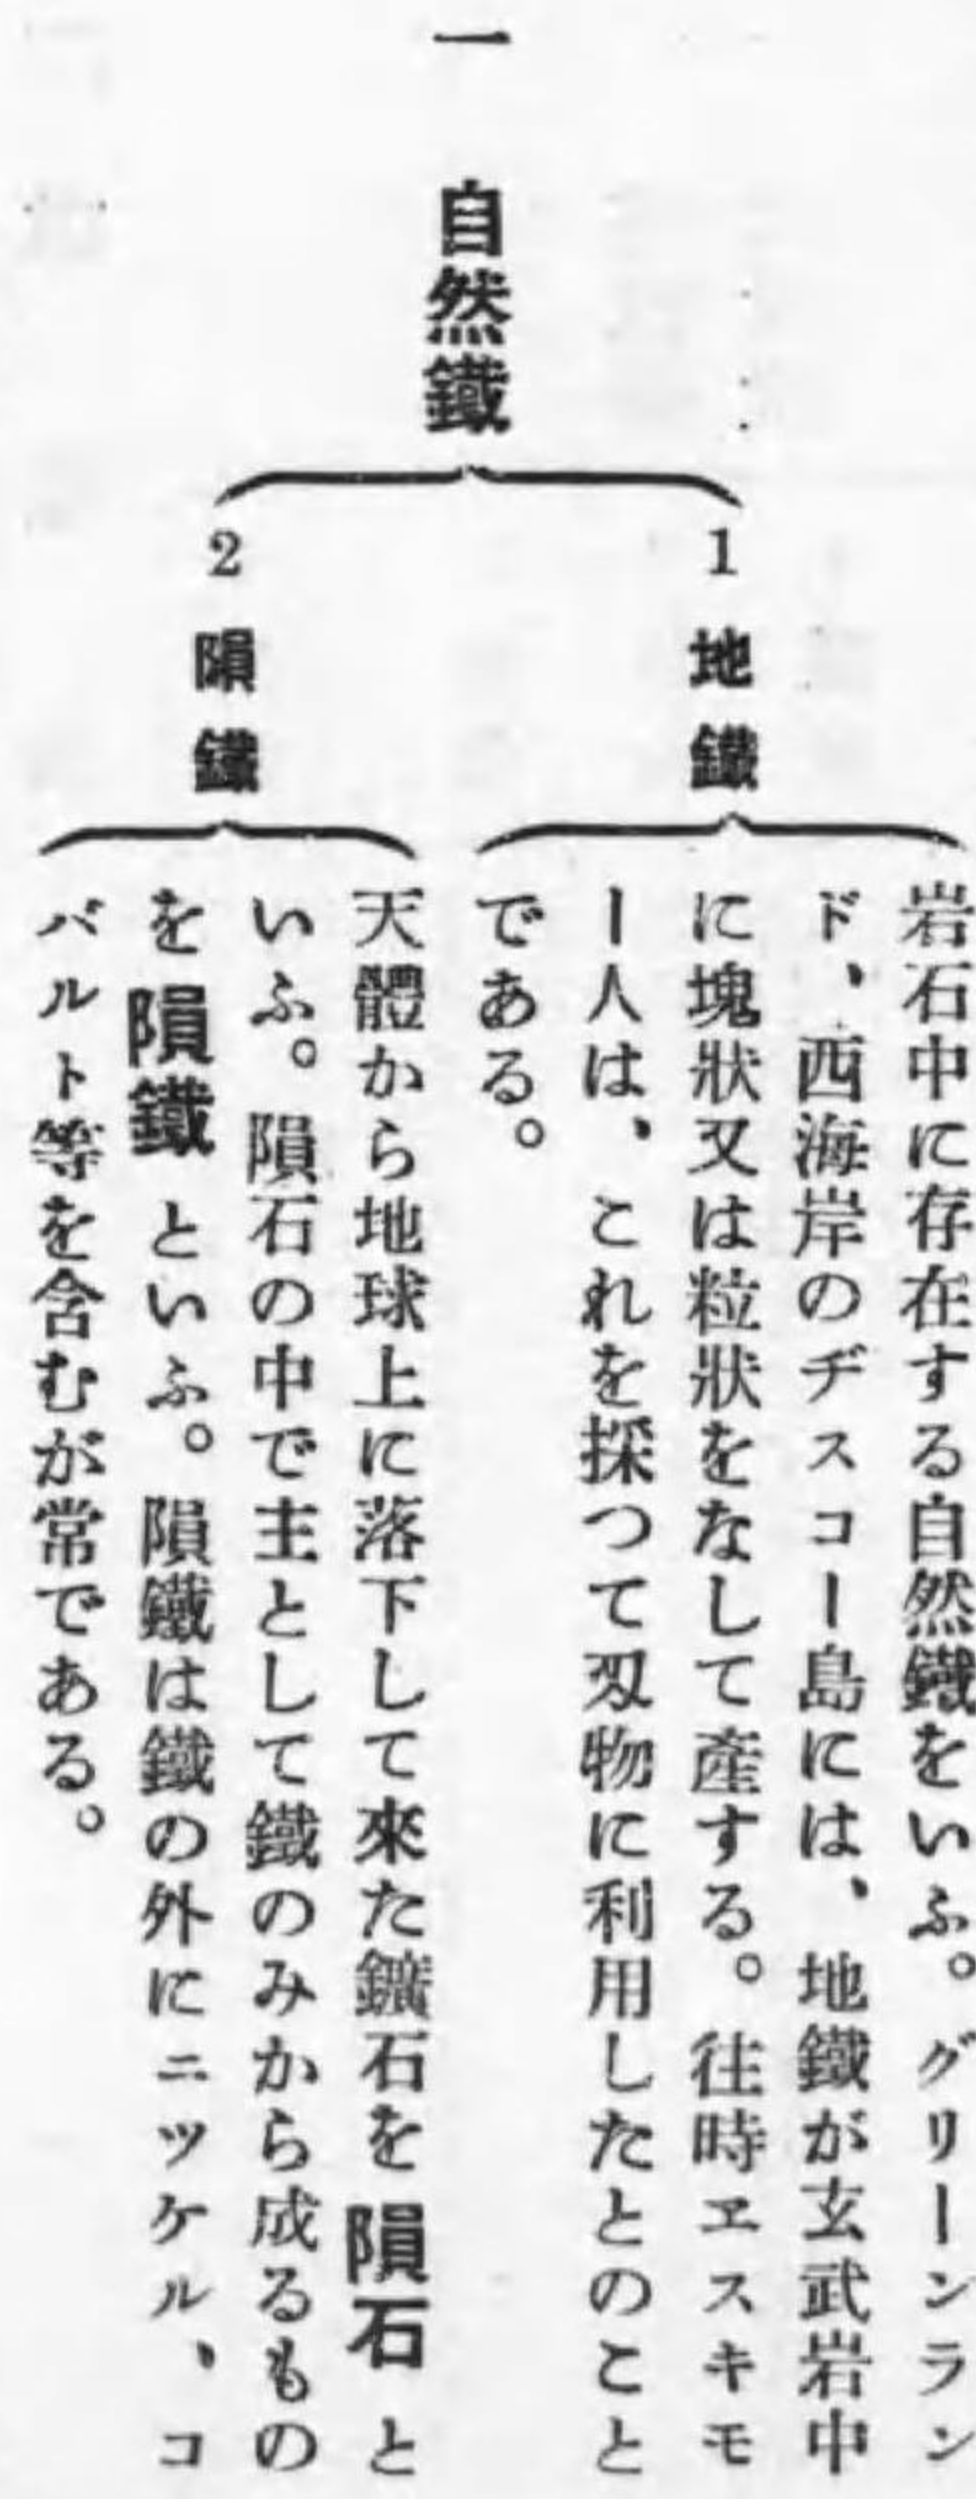 一　自然鐵
1　地鐵
岩石中に存在する自然鐵をいふ。グリーンラン
ド、西海岸のヂスコー島には、地鐵が玄武岩中
に塊狀又は粒狀をなして產する。往時ヱスキモ
ー人は、これを採つて刄物に利用したとのこと
である。
2　隕鐵
天體から地球上に落下して來た鑛石を隕石と
いふ。隕石の中で主として鐵のみから成るもの
を隕鐵といふ。隕鐵は鐵の外にニツケル、コ
バルト等を含むが常である。